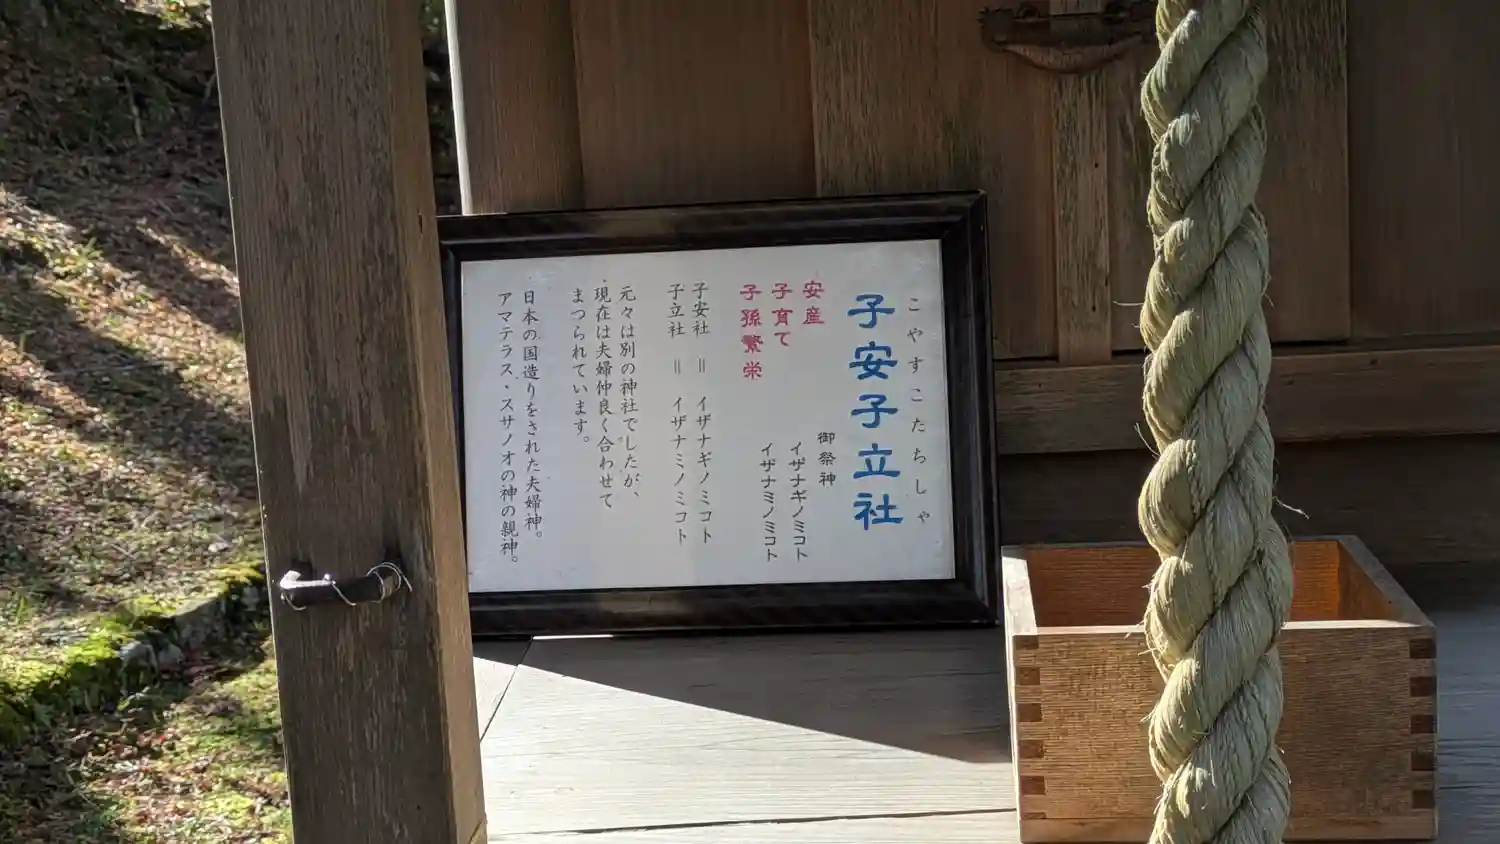 こやすこたちしゃ
子安子立社
御祭神
イザナギノミコト
イザナミノミコト
安産
子育て
子孫繁栄
子安社 ＝ イザナギノミコト
子立社 ＝ イザナミノミコト
元々は別の神社でしたが、
・現在は夫婦仲良く合わせて
まつられています。
・日本の国造りをされた夫婦神。
アマテラス・スサノオの神の親神。